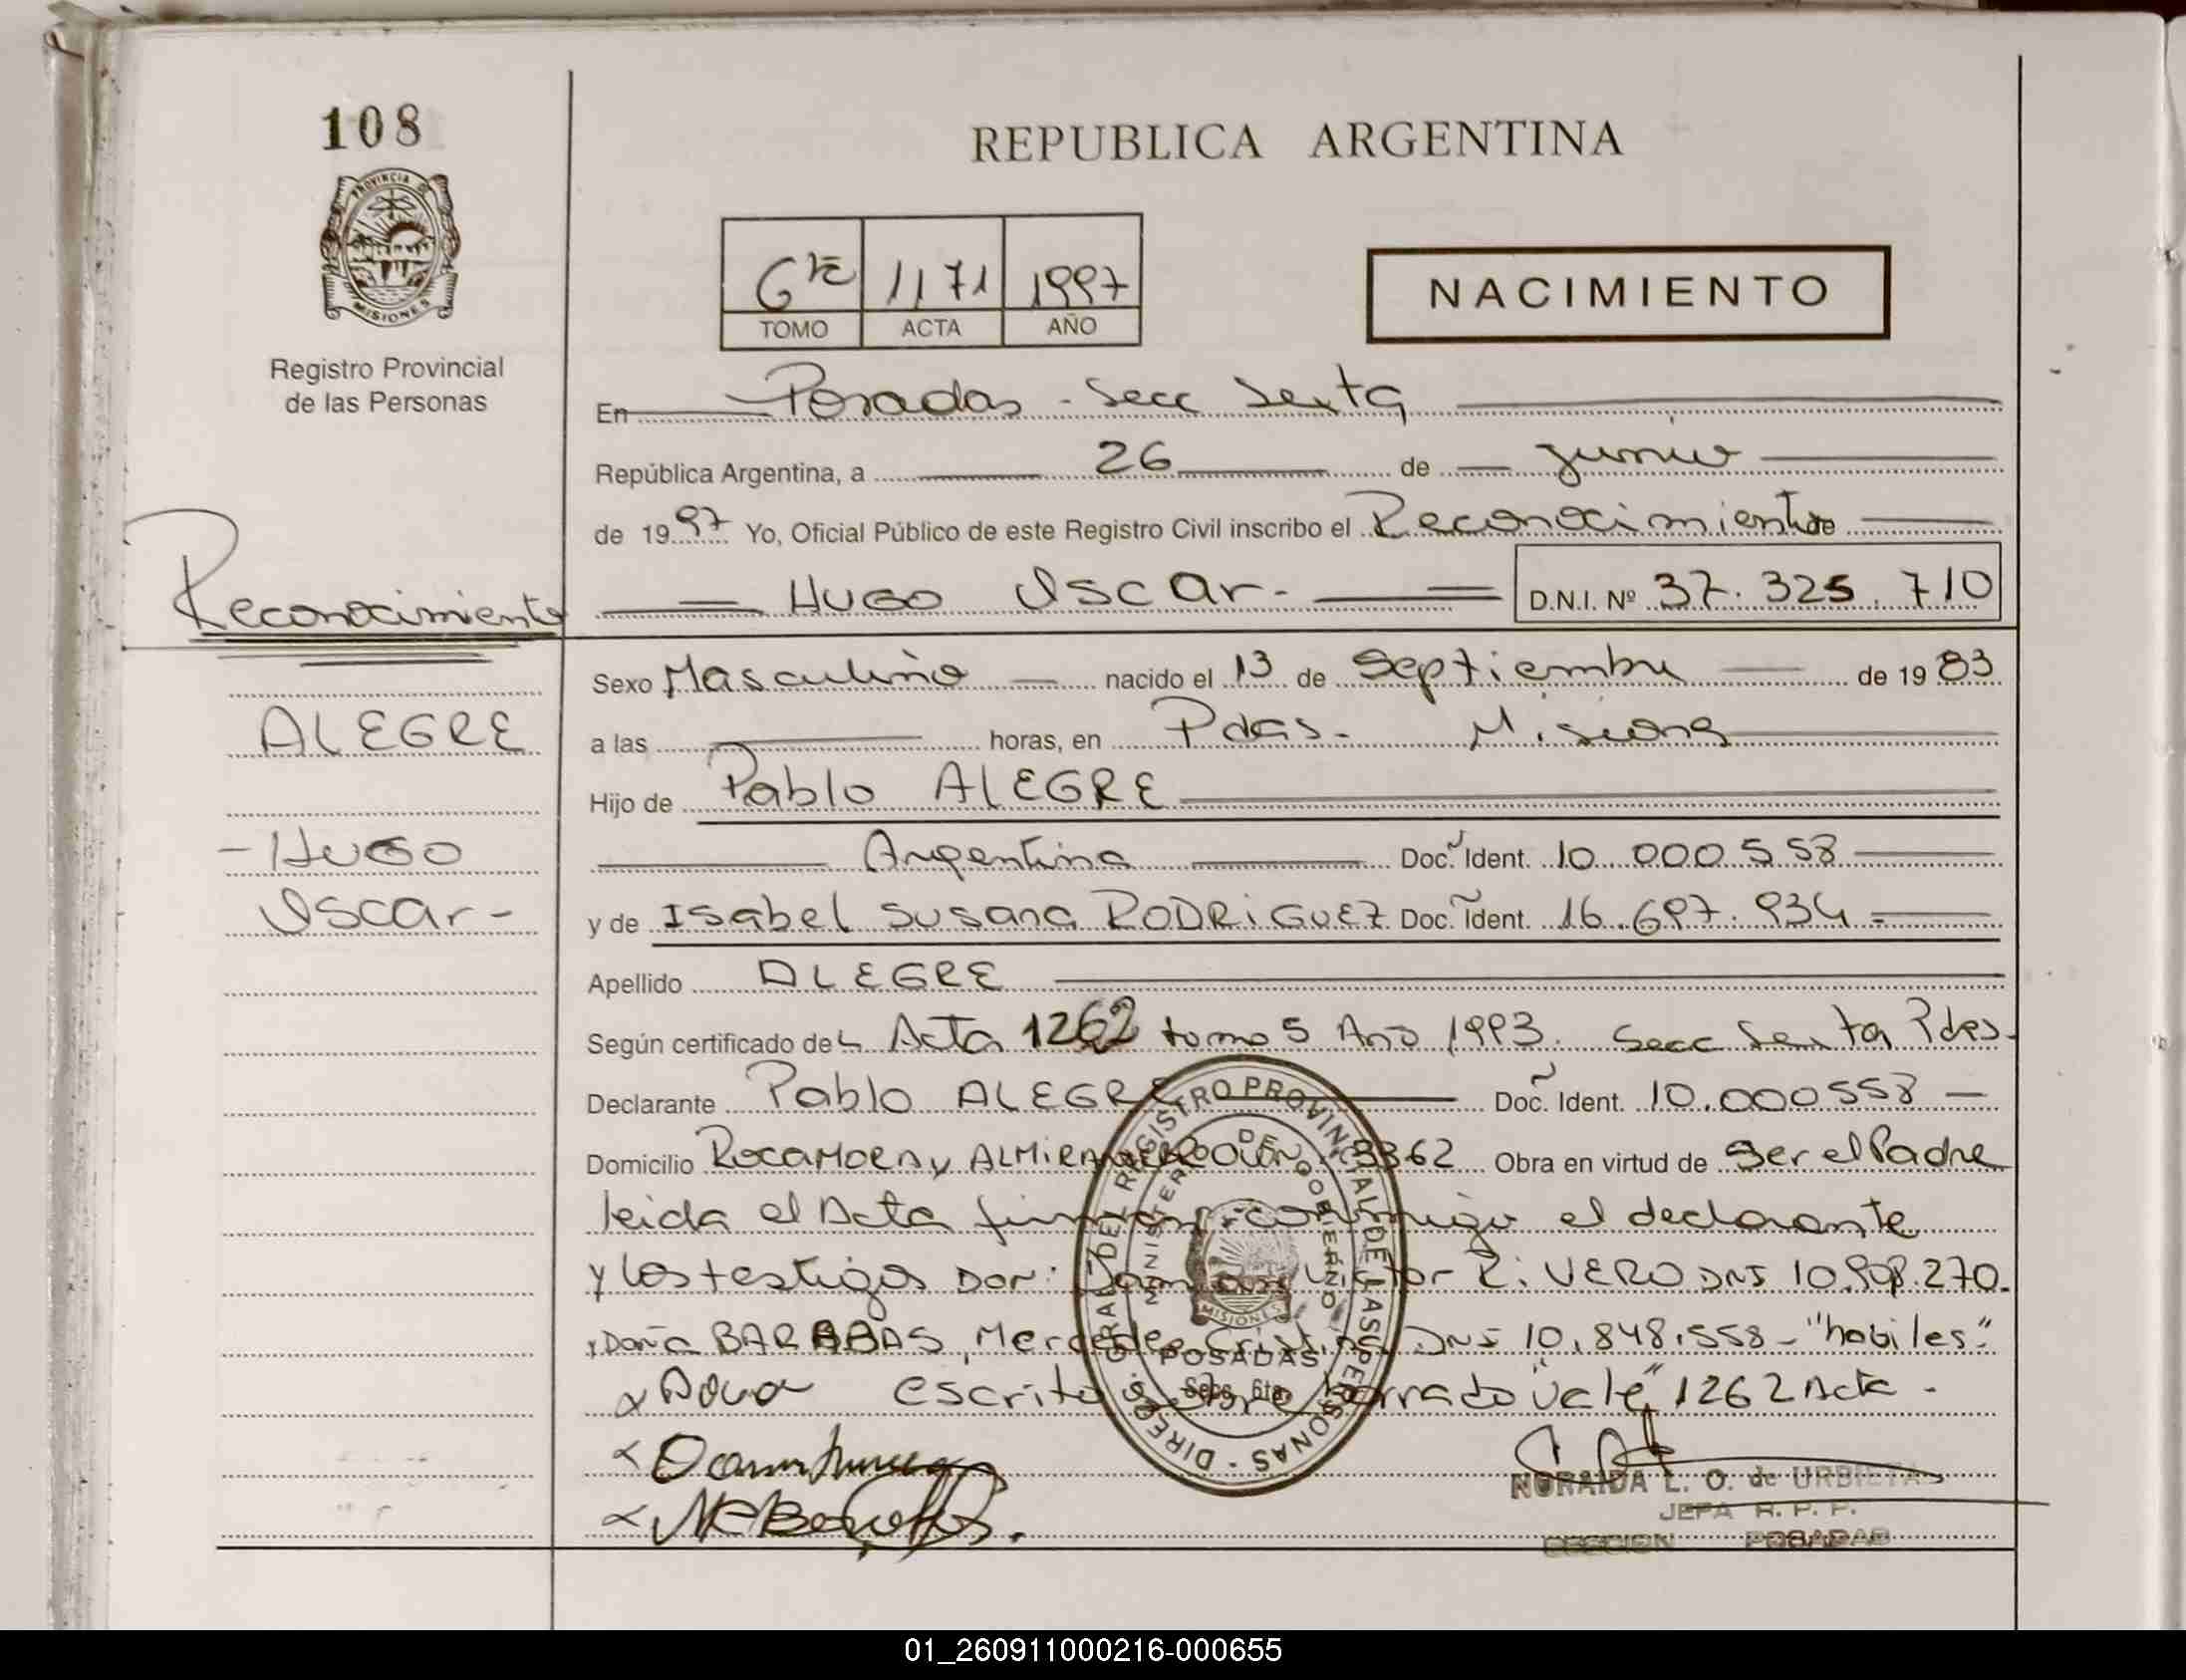 108
PROVINCIA DE
MISIONES
Registro Provincial
de las Personas
REPUBLICA ARGENTINA
TOMO 1171 1997
TOMO ACTA AÑO
NACIMIENTO
En Posadas - Secc Sexta
República Argentina, a 26 de junio
de 1997 Yo, Oficial Público de este Registro Civil inscribo el Reconocimiento de
HUGO OSCAR.- D.N.I. Nº 37.325.710
Reconocimiento
ALEGRE
- HUGO
OSCAR -
Sexo Masculino nacido el 13 de Septiembre de 19 83
a las horas, en Pdas. Misiones
Hijo de Pablo ALEGRE
Argentina Doc. Ident. 10.000.558
y de Isabel Susana RODRIGUEZ Doc. Ident. 16.697.934.=
Apellido ALEGRE
Según certificado del Acta 1262 tomo 5 Año 1993. Secc Sexta Pdas.
Declarante Pablo ALEGRE Doc. Ident. 10.000558
Domicilio ROCAMORA y ALMIRANTE BROWN 3362 Obra en virtud de Ser el Padre
leida el Acta firman conmigo el declarante
y los testigos Don: RIVERO DNI 10.908.270.
y Doña BARABAS, Mercedes Cristina DNI 10.848.558 - "habiles"
x escrito sobre borrado "vale" 1262 Acta -
DIRECC. GRAL DEL REGISTRO PROVINCIAL DE LAS PERSONAS
MINISTERIO DE GOBIERNO
MISIONES
POSADAS
Secc. 6ta.
NORAIDA L. O. de URBIETA
JEFA R. P. P.
SECCION POSADAS
01_260911000216-000655